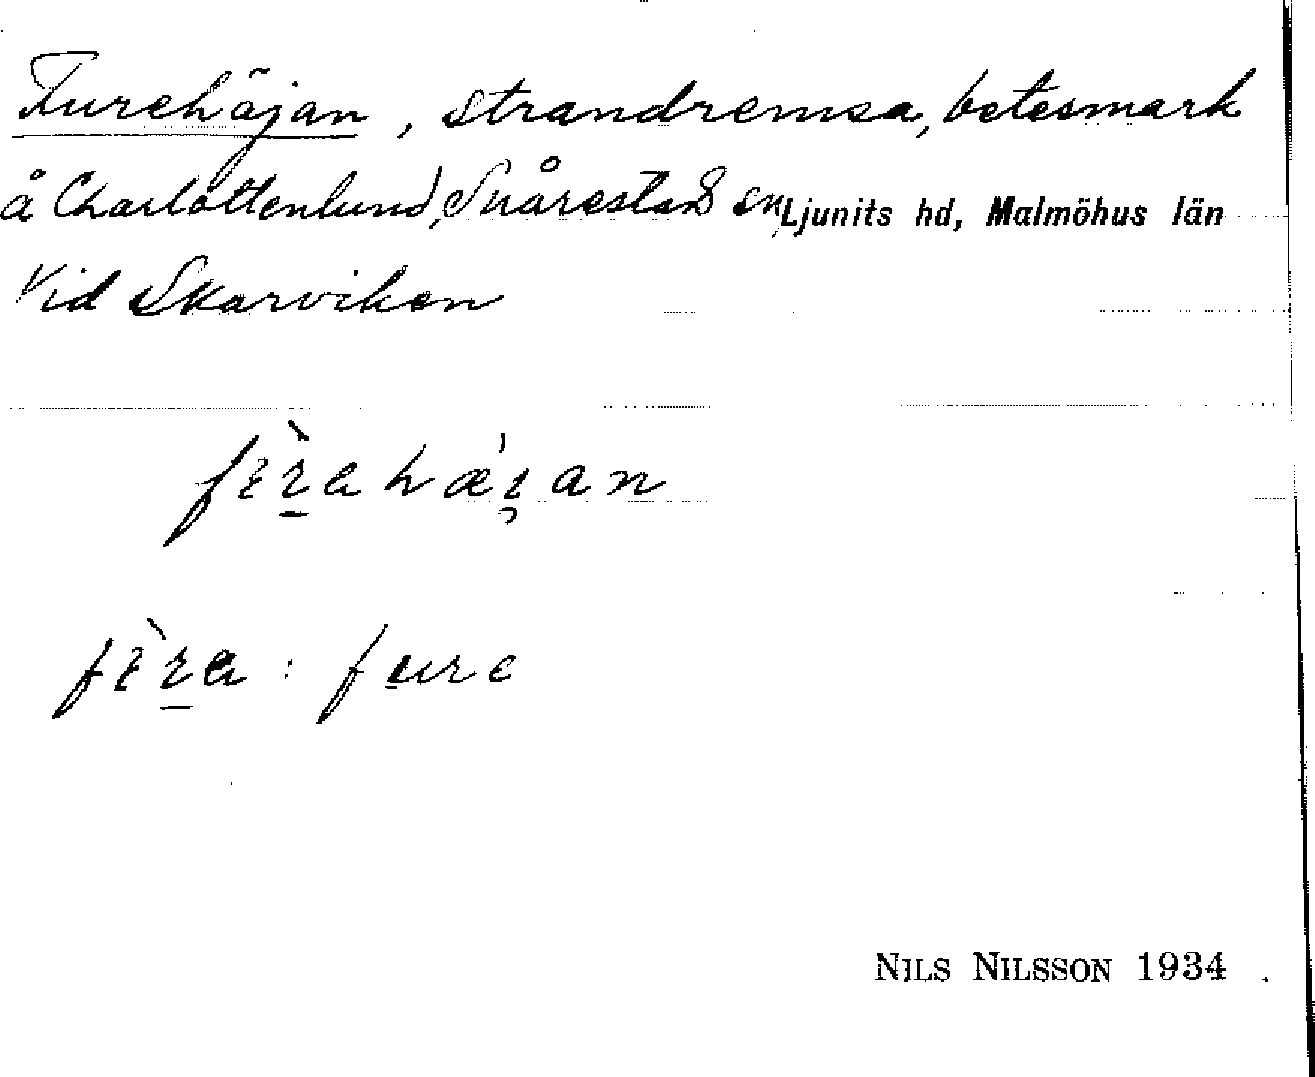 Furehöjan, strandremsa, betesmark
å Charlottenlund, Snårestad sn, Ljunits hd, Malmöhus län
Vid Skarviken
: fure
NILS NILSSON 1934